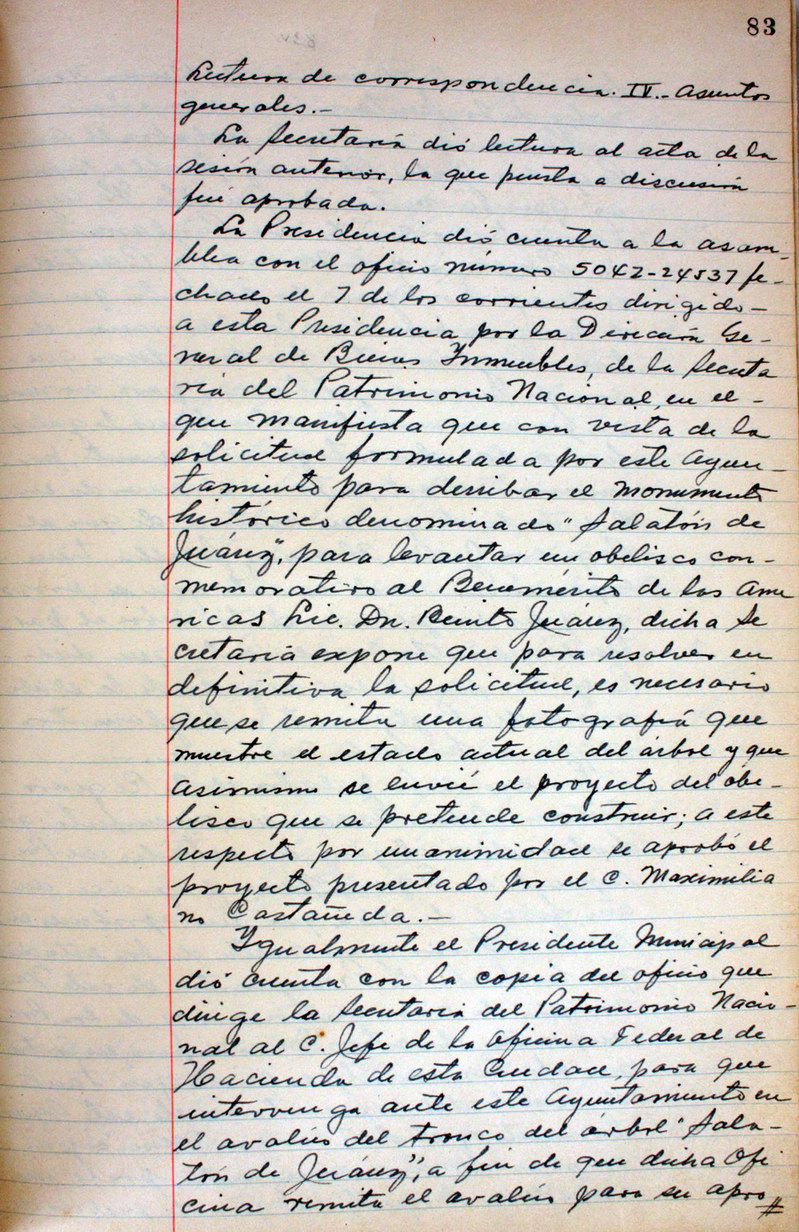 83
Lectura de correspondencia. IV.- Asuntos
generales.-
La Secretaría dió lectura al acta de la
sesión anterior, la que puesta a discusión
fué aprobada.
La Presidencia dió cuenta a la asam-
blea con el oficio número 5042-24537 fe-
chado el 7 de los corrientes dirigido-
a esta Presidencia por la Dirección Ge-
neral de Bienes Inmuebles, de la Secreta
ría del Patrimonio Nacional, en el-
que manifiesta que con vista de la
solicitud formulada por este Ayun-
tamiento para derribar el monumento
histórico denominado "Salatón de
Juárez", para levantar un obelisco con-
memorativo al Benemérito de las Ame
ricas Lic. Dn. Benito Juárez, dicha Se
cretaría expone que para resolver en
definitiva la solicitud, es necesario
que se remita una fotografía que
muestre el estado actual del árbol y que
asimismo se envié el proyecto del obe-
lisco que se pretende construir; a este
respecto por unanimidad se aprobó el
proyecto presentado por el C. Maximilia
no Castañeda.-
Igualmente el Presidente Municipal
dió cuenta con la copia del oficio que
dirige la Secretaría del Patrimonio Nacio-
nal al C. Jefe de la Oficina Federal de
Hacienda de esta Ciudad, para que
intervenga ante este Ayuntamiento en
el avalúo del tronco del árbol "Sala-
tón de Juárez", a fin de que dicha Ofi
cina remita el avalúo para su apro//